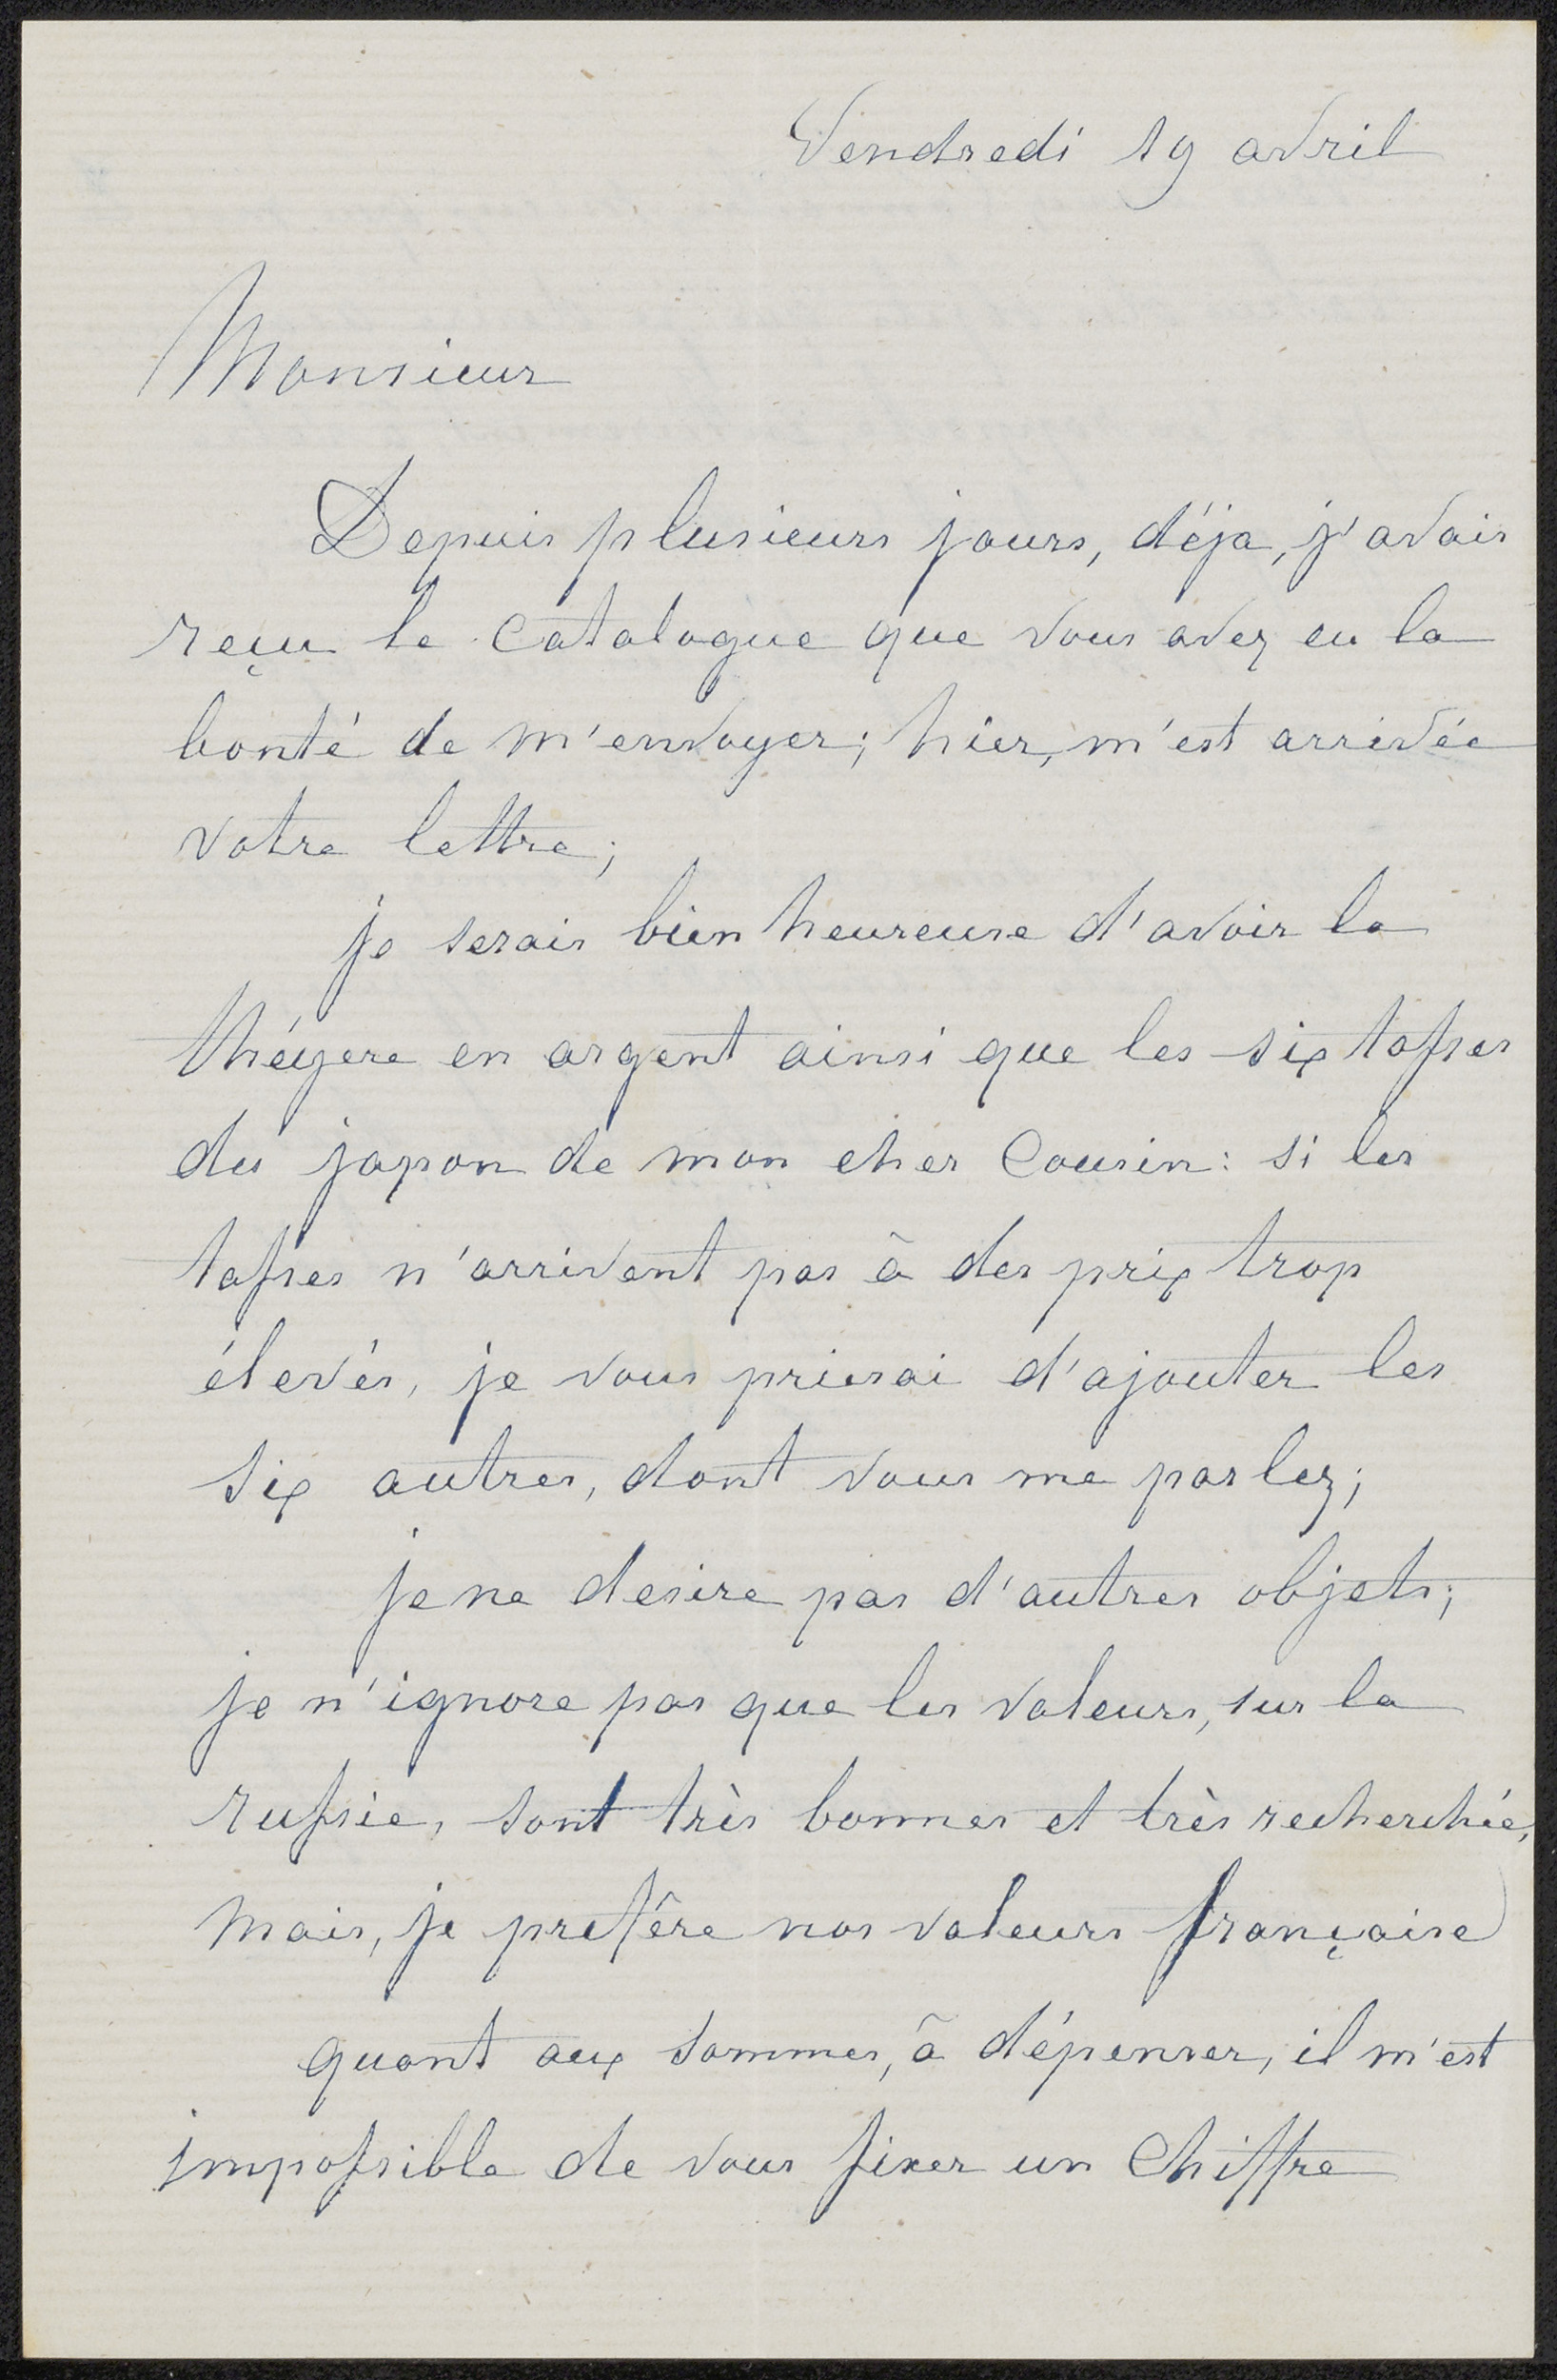 Vendredi 19 avril
Monsieur
Depuis plusieurs jours, déja, j'avais
reçu le Catalogue que vous avez eu la
bonté de m'envoyer; hier, m'est arrivée
votre lettre;
je serais bien heureuse d'avoir la
théyere en argent ainsi que les six tasses
du japon de mon cher Cousin: si les
tasses n'arrivent pas à des prix trop
élevés, je vous prierai d'ajouter les
six autres, dont vous me parlez;
je ne desire pas d'autres objets;
je n'ignore pas que les valeurs, sur la
russie, sont très bonnes et très recherchées,
mais, je prefère nos valeurs française
quant aux sommes, à dépenser, il m'est
impossible de vous fixer un Chiffre